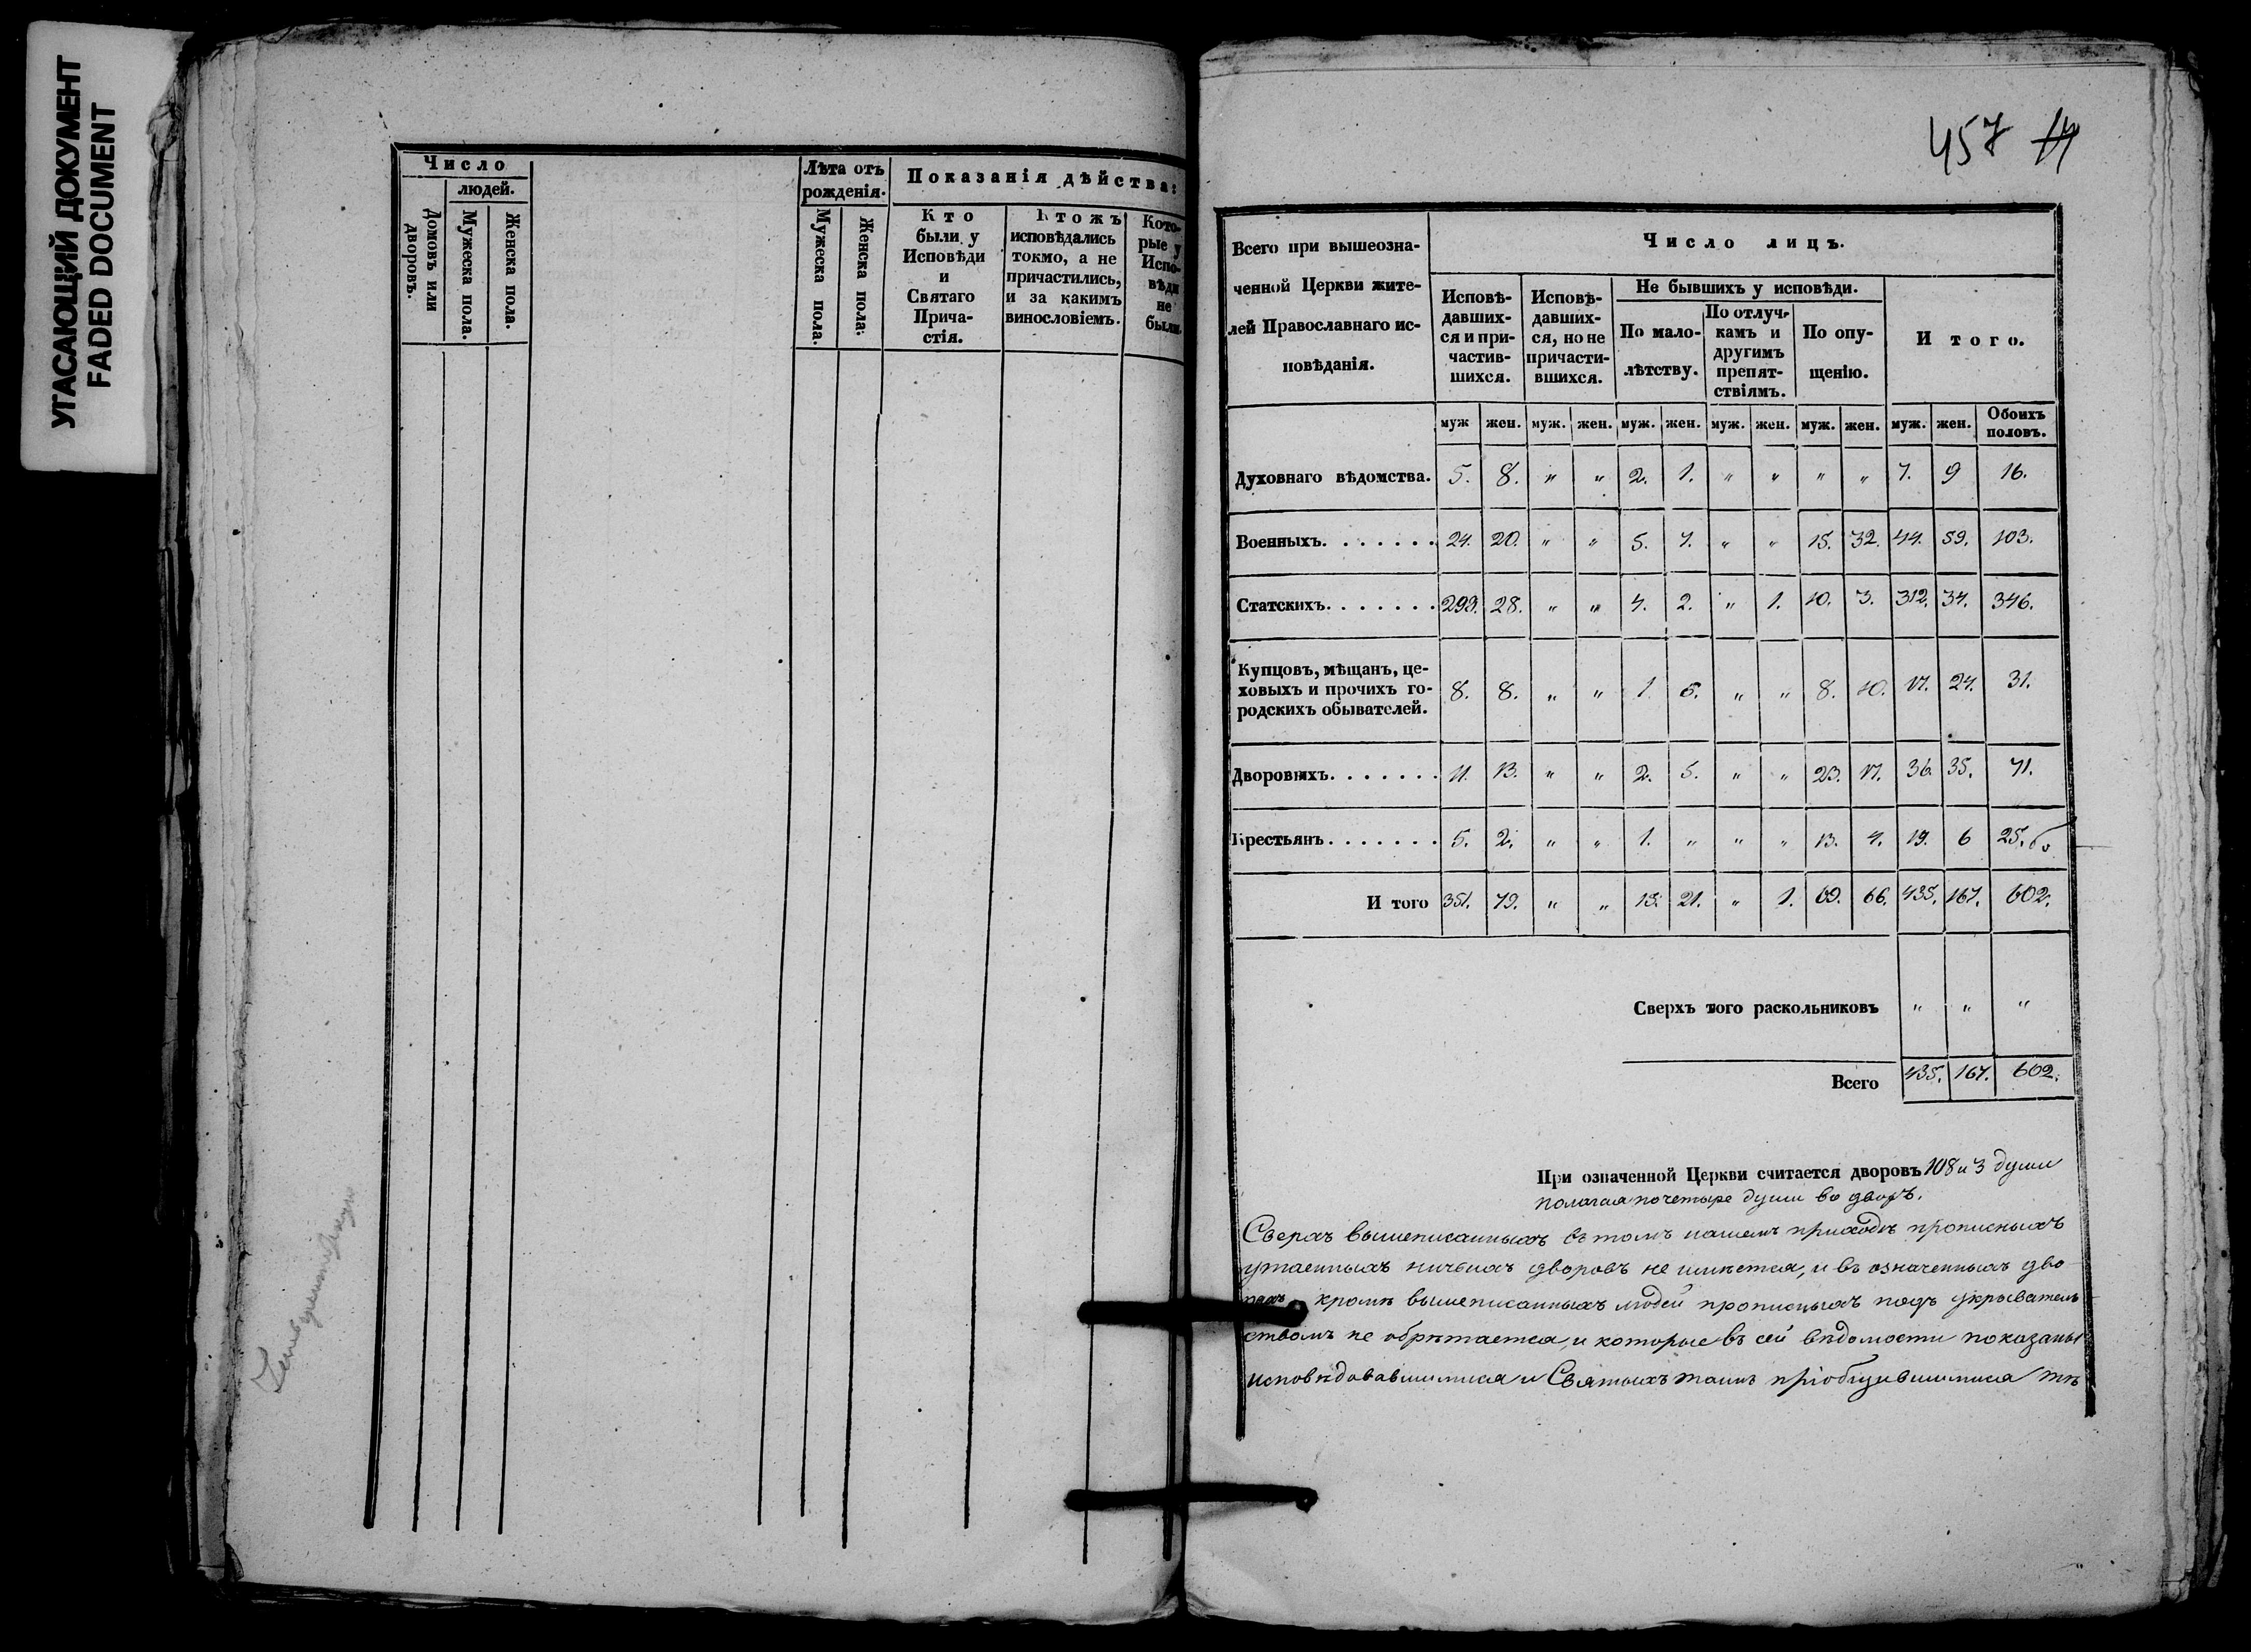 УГАСАЮЩИЙ ДОКУМЕНТ
FADED DOCUMENT
Число
людей.
Домовъ или дворовъ.
Мужеска пола.
Женска пола.
Лѣта отъ рожденія.
Мужеска пола.
Женска пола.
Показанія дѣйства:
Кто были у Исповѣди и Святаго Прича-стія.
Ктожъ исповѣдались токмо, а не причастились, и за какимъ винословіемъ.
Кото-рые у Испо-вѣди не были.
457
Всего при вышеозна-
ченной Церкви жите-
лей Православнаго ис-
повѣданія.
Число лицъ.
Исповѣ-давших-ся и при-частив-шихся.
Исповѣ-давших-ся, но не причасти-вшихся.
Не бывшихъ у исповѣди.
По мало-лѣтству.
По отлуч-камъ и другимъ препят-ствіямъ.
По опу-щенію.
Итого.
муж жен. муж. жен. муж. жен. муж. жен. муж. жен. муж. жен. Обоихъ половъ.
Духовнаго вѣдомства. 5. 8. " " 2. 1. " " " " 7. 9 16.
Военныхъ. . . . . . . 24. 20. " " 5. 7. " " 15. 32. 44. 59. 103.
Статскихъ. . . . . . . 299. 28. " " 4. 2. " 1. 10. 3. 312. 34. 346.
Купцовъ, мѣщанъ, це-
ховыхъ и прочихъ го-
родскихъ обывателей. 8. 8. " " 1. 6. " " 8. 10. 17. 24. 31.
Дворовыхъ. . . . . . . 11. 13. " " 2. 5. " " 23. 17. 36. 35. 71.
Крестьянъ. . . . . . . 5. 2. " " 1. " " " 13. 4. 19. 6 25.
И того 351. 79. " " 15. 21. " 1. 69. 66. 435. 167. 602.
Сверхъ того раскольниковъ " " "
Всего 435. 167. 602.
При означенной Церкви считается дворовъ 108 и 3 души
полагая по четыре души во дворъ.
Сверхъ вышеписанныхъ въ томъ нашемъ приходѣ прописныхъ
утаенныхъ ничьихъ дворовъ не имѣется, и въ означенныхъ дво-
рахъ кромѣ вышеписанныхъ людей прописныхъ подъ укрыватель
ствомъ не обрѣтается, и которые въ сей вѣдомости показаны
исповѣдовавшимися и Святыхъ таинъ пріобщившимися тѣ